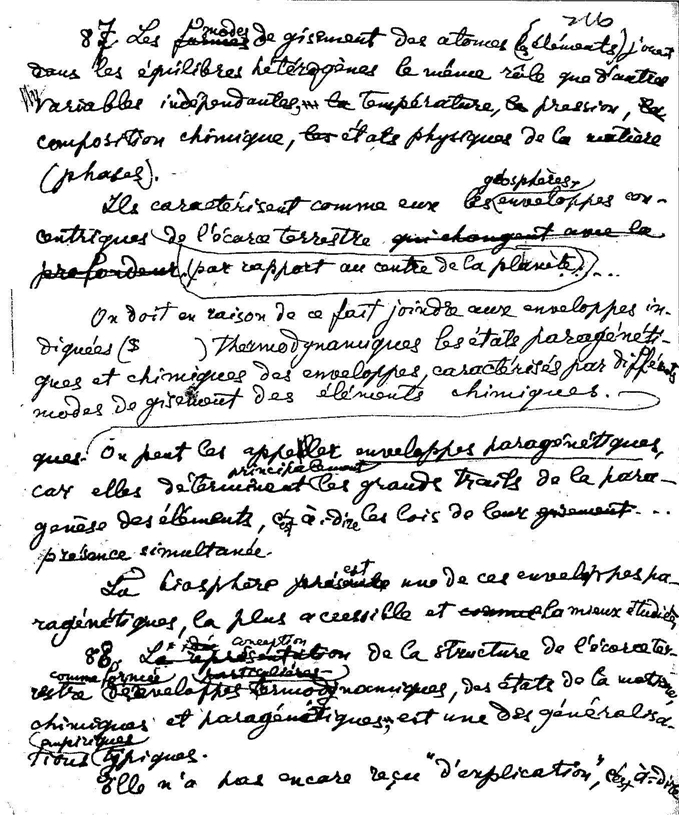 216
87. Les formes modes de gisement des atomes (des éléments) jouent
dans les équilibres hétérogènes le même rôle que d'autres
variables indépendantes, la température, la pression, la
composition chimique, les états physiques de la matière
(phases).
Ils caractérisent comme eux les géosphères, enveloppes con-
centriques de l'écorce terrestre qui changent avec la
profondeur (par rapport au centre de la planète)...
On doit en raison de ce fait joindre aux enveloppes in-
diquées (§ ) thermodynamiques les états paragénéti-
ques et chimiques des enveloppes, caractérisés par différents
modes de gisement des éléments chimiques.
ques. On peut les appeller enveloppes paragénétiques,
car elles déterminent principalement les grands traits de la para-
genèse des éléments, c'est à-dire les lois de leur gisement...
présence simultanée.
La biosphère présente est une de ces enveloppes pa-
ragénétiques, la plus accessible et comme la mieux étudiée,
88. La représentation L'idée conception de la structure de l'écorce ter-
restre comme formée d'enveloppes particulières thermodynamiques, des états de la matière,
chimiques et paragénétiques, est une des généralisa-
tions empiriques typiques.
Elle n'a pas encare reçu "d'explication", c'est à-dire